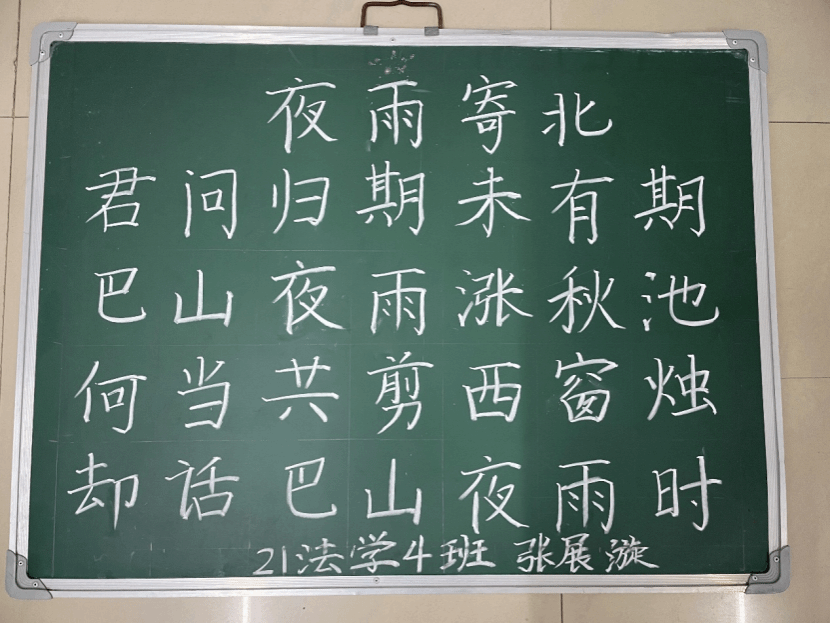 夜雨寄北
君问归期未有期
巴山夜雨涨秋池
何当共剪西窗烛
却话巴山夜雨时
21法学4班 张展漩